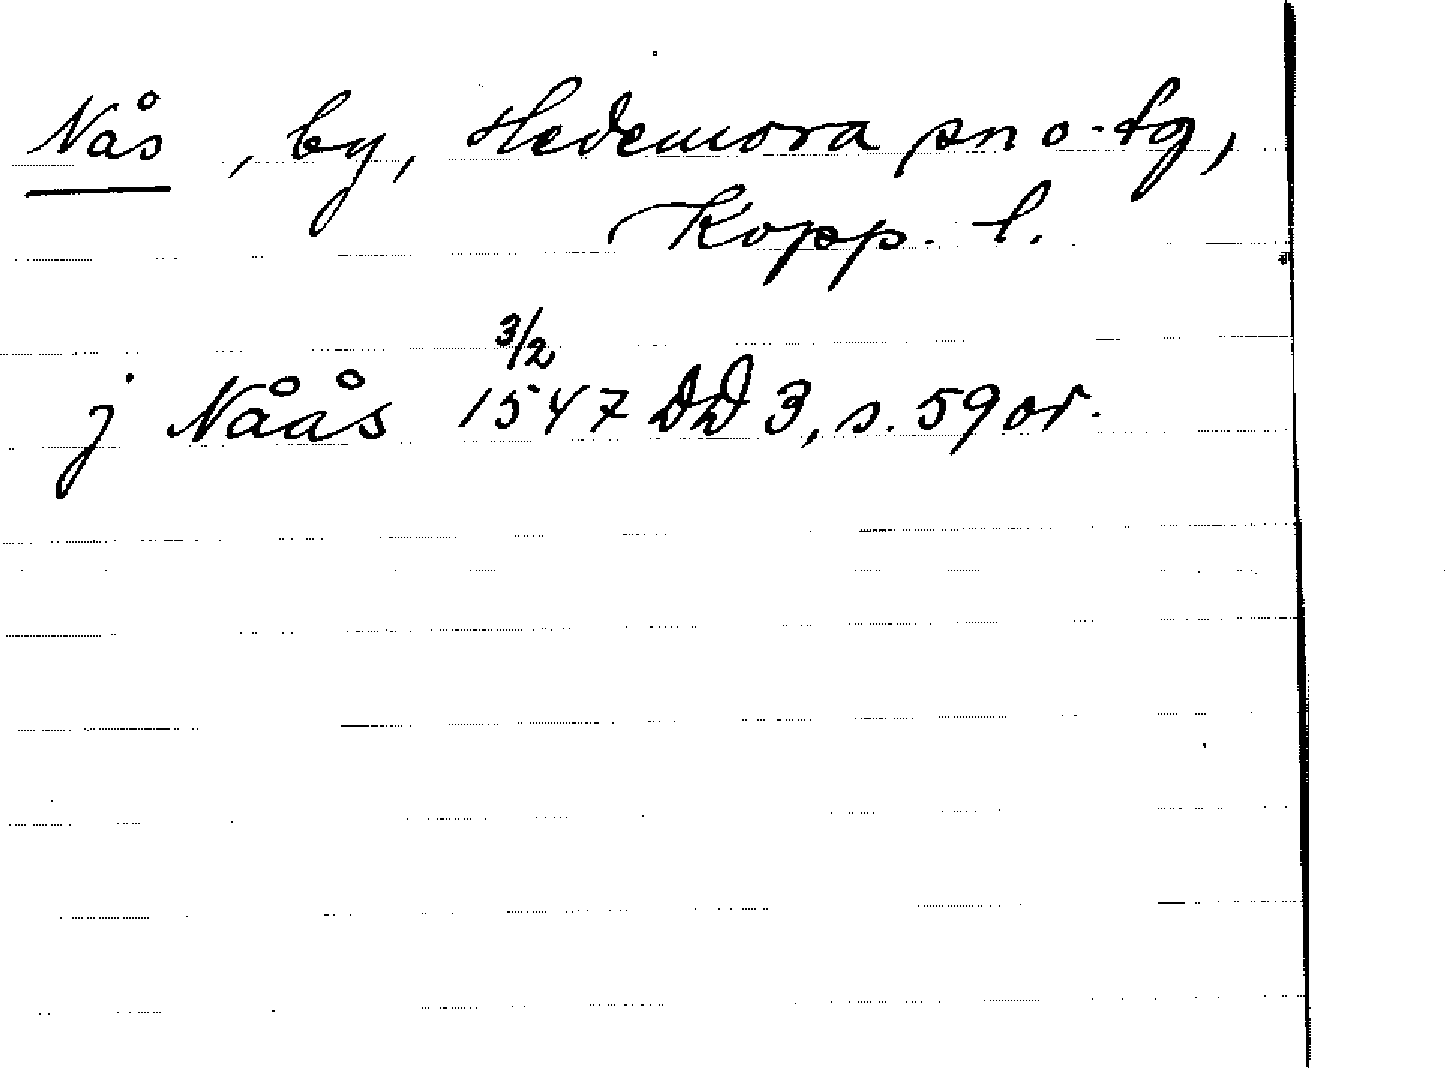 Nås, by, Hedemora sn o. tg,
Kopp. l.
3/2
j Nåås 1547 DD 3, s. 59 or.